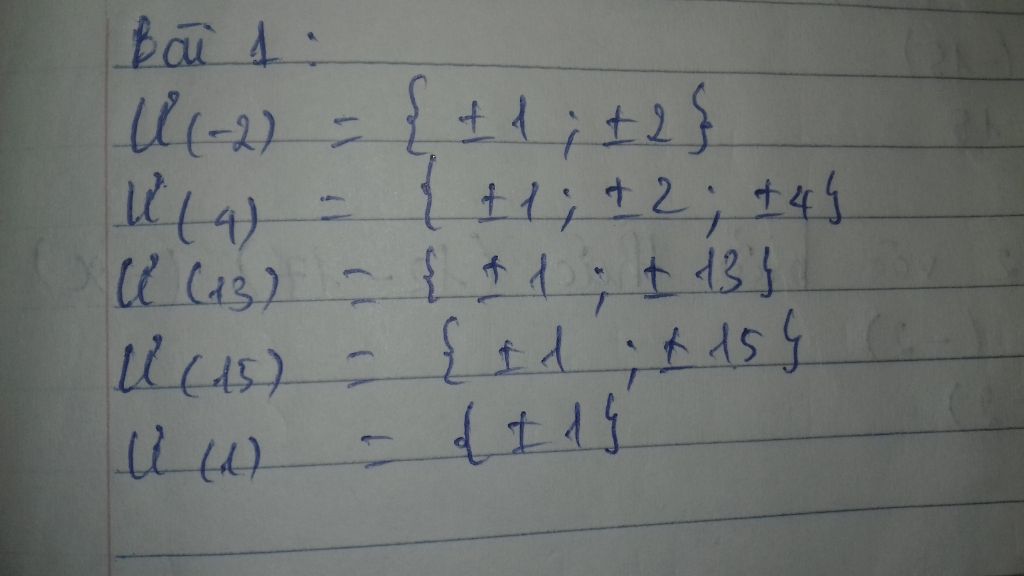 Bài 1 :
Ư(-2) = { ±1 ; ±2}
Ư(4) = { ±1 ; ±2 ; ±4}
Ư(13) = { ±1 ; ±13}
Ư(15) = { ±1 ; ±15}
Ư(1) = { ±1}